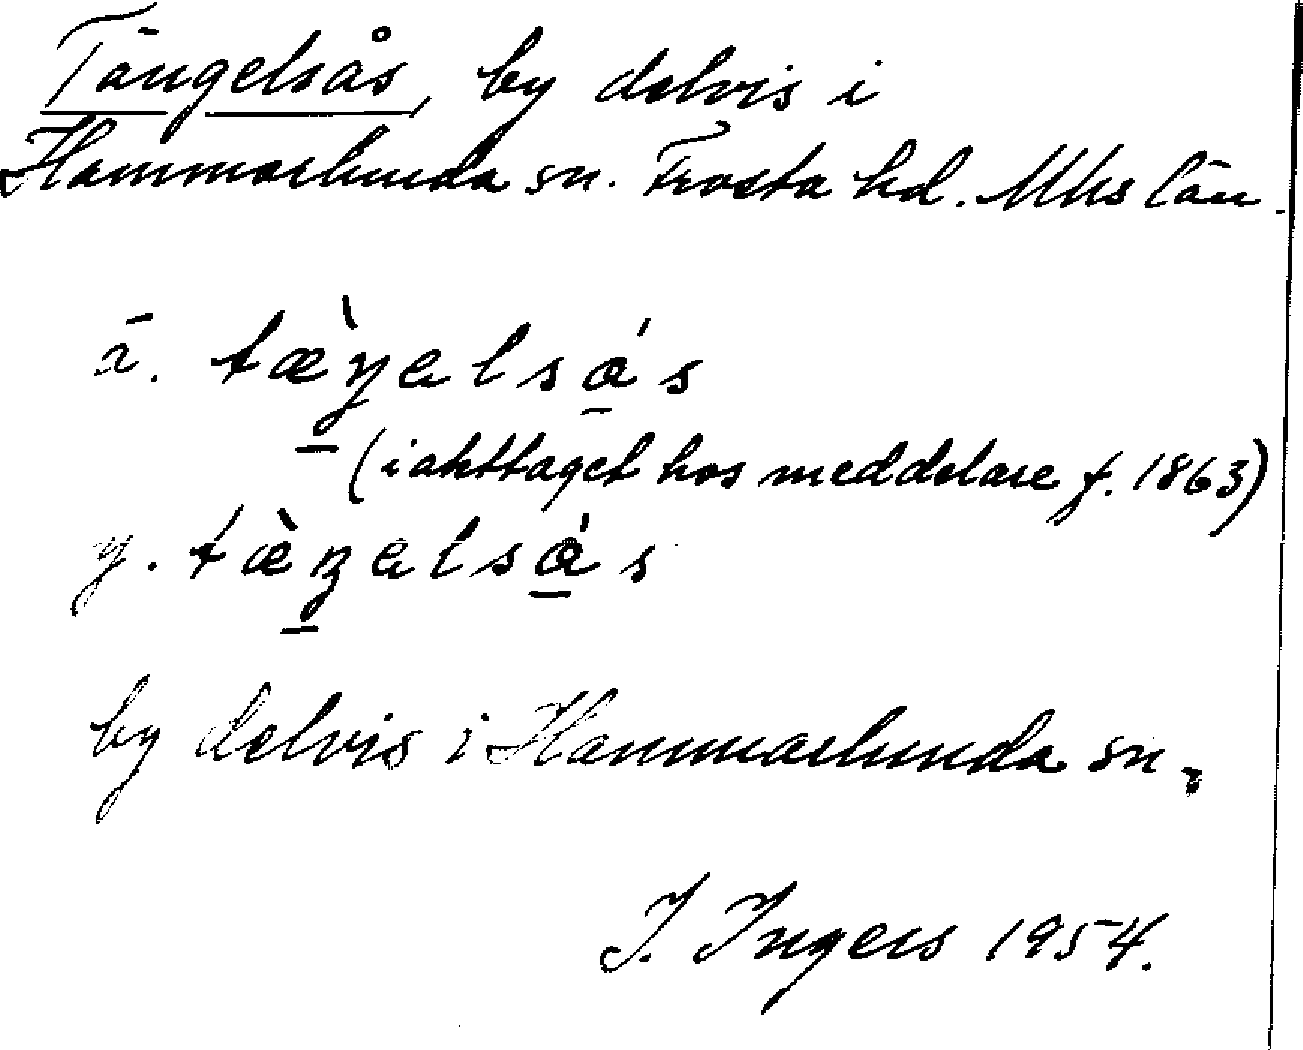 Tängelsås, by delvis i
Hammarlunda sn. Frosta hd. Mhs län.
ä. tæ̀ŋ̱əlsá̱s
(iakttaget hos meddelare f. 1863)
y. tæ̀ŋ̱əlsá̱s
by delvis i Hammarlunda sn.
I. Ingers 1954.